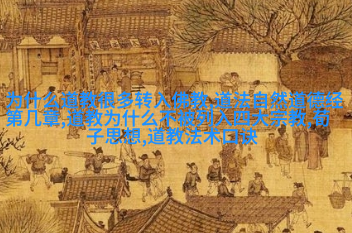 为什么道教很多转入佛教,道法自然道德经
第几章,道教为什么不能列入四大宗教,荀
子思想,道教法术口诀